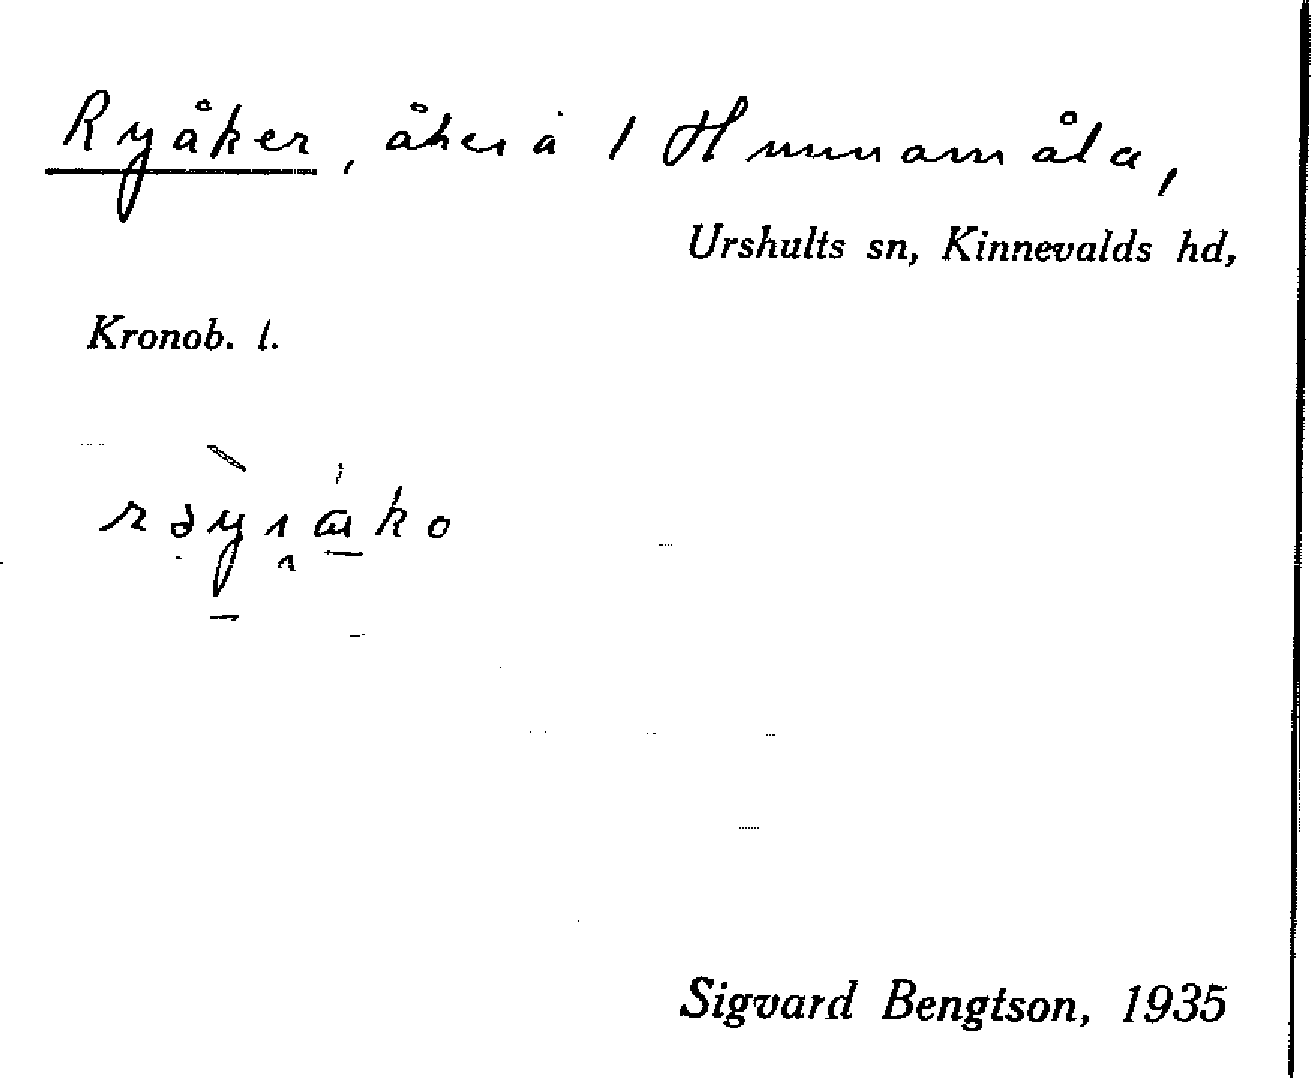 Ryåker, åker å 1 Hunnamåla,
Urshults sn, Kinnevalds hd,
Kronob. l.
Sigvard Bengtson, 1935